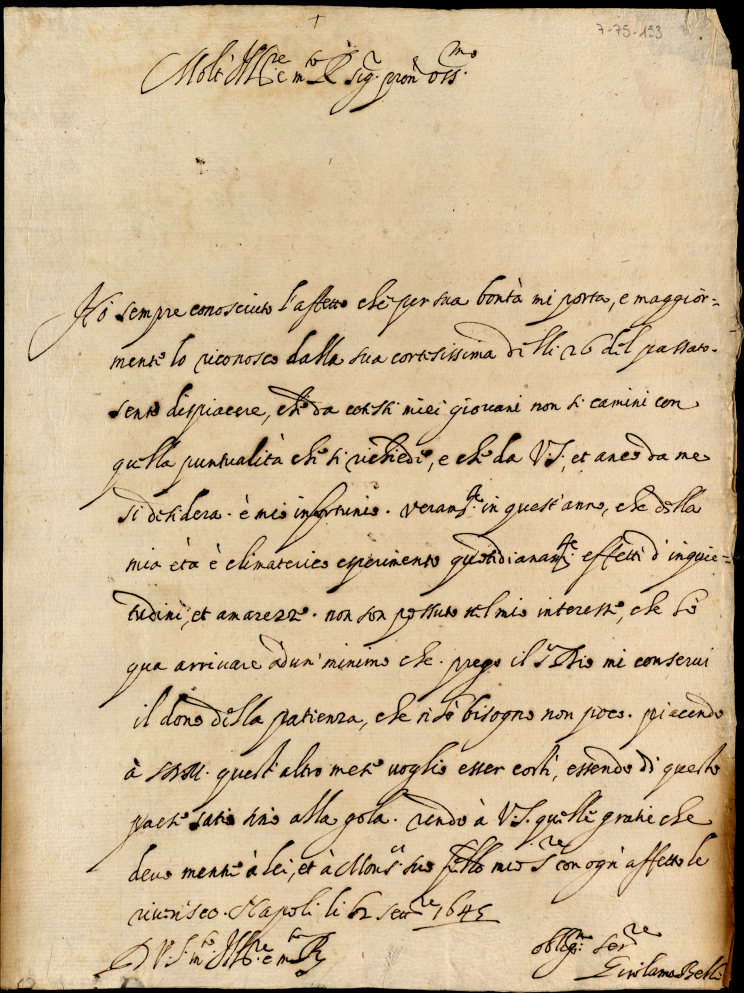 7-75-193
+
Molt' Ill.re e m.to R. sig.r pron oss.mo
Hò sempre conosciuto l'affetto che per sua bontà mi porta, e maggior=
mente lo riconosco dalla sua cortesissima delli 26 del passato.
sento dispiacere, che da cotesti miei giovani non si camini con
quella puntualità che si richiede, e che da V.S. et anco da me
si desidera. è mio infortunio. veram.te in quest'anno, che della
mia età è climaterico esperimento quotidianam.te effetti d'inquie=
tudini, et amarezze. non son possuto nel mio interesse, che hò
qua arrivare ad un minimo che. prego il S. Dio mi conservi
il dono della patienza, che n'hò bisogno non poco. piacendo
à quest'altro mese voglio esser costì, essendo di questo
paese satio sino alla gola. rendo à V.S. quelle gratie che
devo mentre à lei, et à Mons.r suo f.ello mio S.re con ogni affetto le
riverisco. Napoli li 2 1645
D V.S. m.to Ill.re e m.to R.
oblig.mo Ser.re
Girolamo Belli